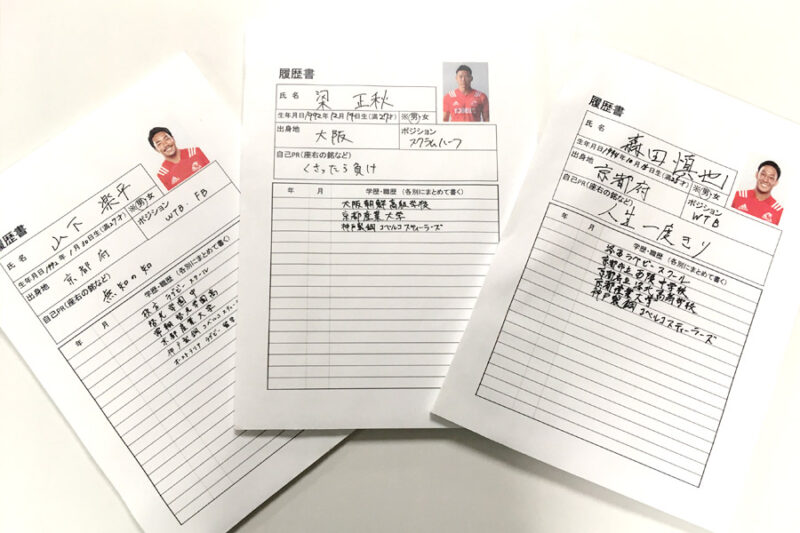 履歴書
氏名 山下 楽平
生年月日1992年1月30日生(満27才) ※(男)女
出身地 京都府
ポジション WTB・FB
自己PR(座右の銘など) 無知の知
年 月 学歴・職歴(各別にまとめて書く)
ラグビースクール
京都産業大学
神戸製鋼コベルコスティーラーズ
オーストラリア ラグビー留学
履歴書
氏名 梁 正秋
生年月日1992年12月19日生(満27才) ※(男)女
出身地 大阪
ポジション スクラムハーフ
自己PR(座右の銘など) くさったら負け
年 月 学歴・職歴(各別にまとめて書く)
大阪朝鮮高級学校
京都産業大学
神戸製鋼コベルコスティーラーズ
履歴書
氏名 森田慎也
出身地 京都府 ※(男)女
ポジション WTB
自己PR(座右の銘など) 人生一度きり
年 月 学歴・職歴(各別にまとめて書く)
ラグビースクール
京都産業大学
神戸製鋼コベルコスティーラーズ